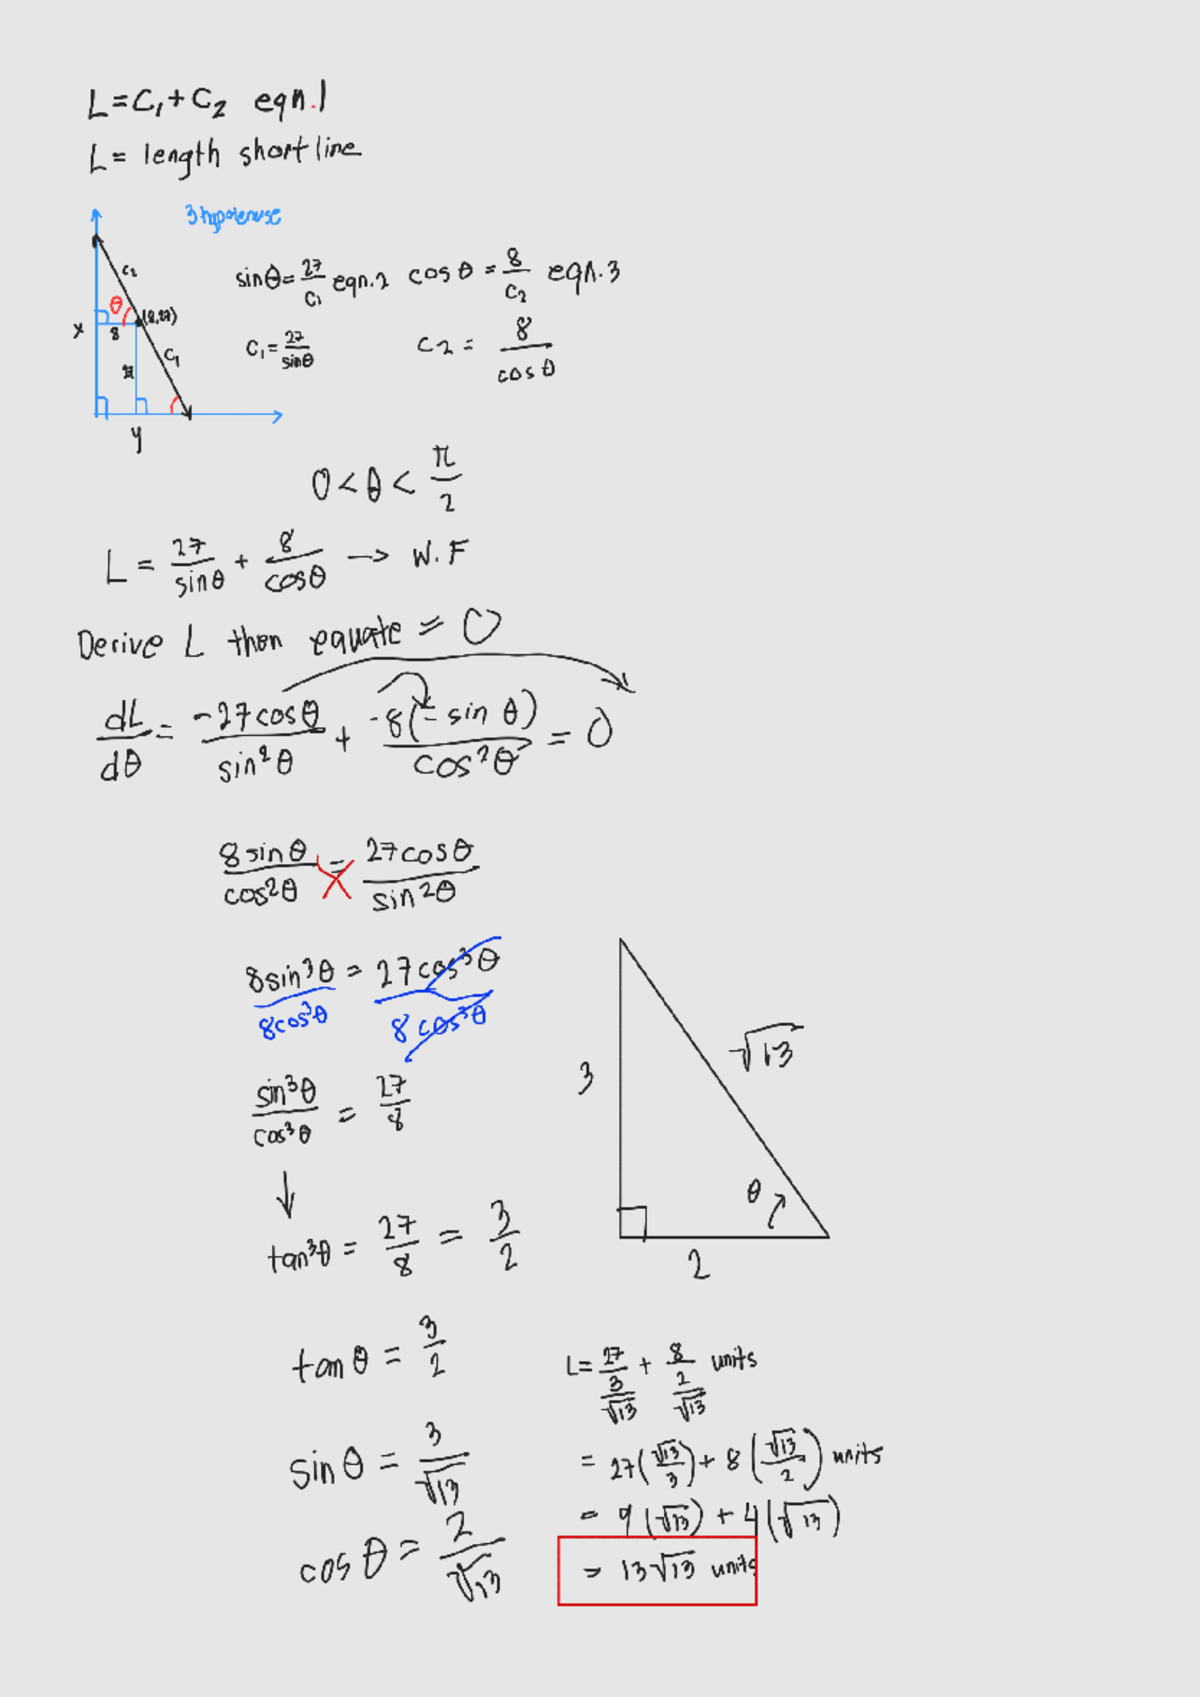 L = C₁ + C₂ eqn.1
L = length short line
3 hypotenuse
C₂
θ
(8,27)
x
8
C₁
27
y
sinθ = 27/C₁ eqn.2 cos θ = 8/C₂ eqn.3
C₁ = 27/sinθ C₂ = 8/cos θ
0 < θ < π/2
L = 27/sinθ + 8/cosθ → W.F
Derive L then equate = 0
dL/dθ = -27cosθ/sin²θ + -8(-sin θ)/cos²θ = 0
8sinθ/cos²θ = 27cosθ/sin²θ
8sin³θ/8cos³θ = 27cos³θ/8cos³θ
sin³θ/cos³θ = 27/8
↓
tan³θ = 27/8 = 3/2
3
√13
θ
2
tan θ = 3/2
sin θ = 3/√13
cos θ = 2/√13
L = 27/(3/√13) + 8/(2/√13) units
= 27(√13/3) + 8(√13/2) units
= 9(√13) + 4(√13)
= 13√13 units